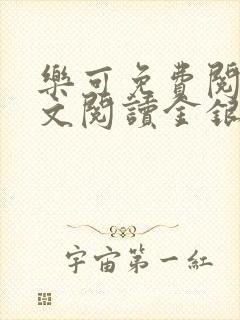 樂可免費閱
文閱讀金銀
宇宙第一紅